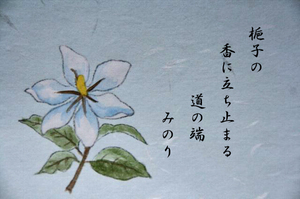 梔子の
香に立ち止まる
道の端
みのり